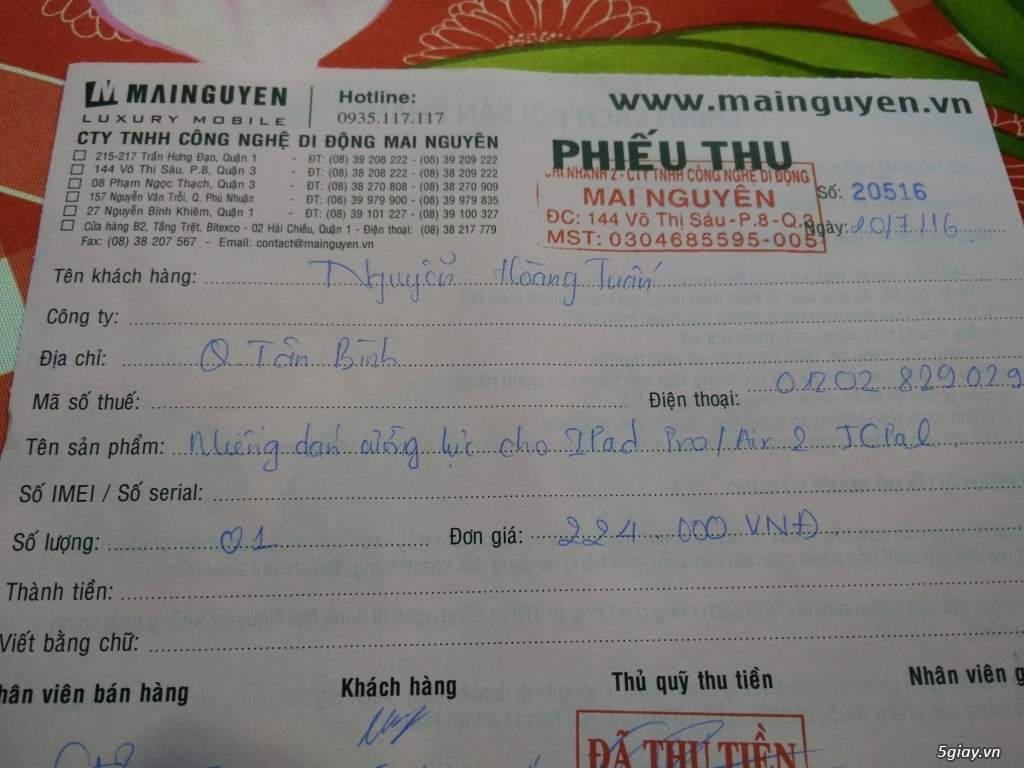 MAINGUYEN
LUXURY MOBILE
Hotline:
0935.117.117
www.mainguyen.vn
CTY TNHH CÔNG NGHỆ DI ĐỘNG MAI NGUYÊN
215-217 Trần Hưng Đạo, Quận 1 - ĐT: (08) 39 208 222 - (08) 39 209 222
144 Võ Thị Sáu, P.8, Quận 3 - ĐT: (08) 38 208 222 - (08) 38 209 222
08 Phạm Ngọc Thạch, Quận 3 - ĐT: (08) 38 270 808 - (08) 38 270 909
157 Nguyễn Văn Trỗi, Q. Phú Nhuận - ĐT: (08) 39 979 900 - (08) 39 979 835
27 Nguyễn Bỉnh Khiêm, Quận 1 - ĐT: (08) 39 101 227 - (08) 39 100 327
Cửa hàng B2, Tầng Trệt, Bitexco - 02 Hải Chiều, Quận 1 - Điện thoại: (08) 38 217 779
Fax: (08) 38 207 567 - Email: contact@mainguyen.vn
PHIẾU THU
CHI NHÁNH 2 - CTY TNHH CÔNG NGHỆ DI ĐỘNG
MAI NGUYÊN
ĐC: 144 Võ Thị Sáu-P.8-Q.3
MST: 0304685595-005
Số: 20516
Ngày: 20/7/16
Tên khách hàng: Nguyễn Hoàng Tuấn
Công ty:
Địa chỉ: Q Tân Bình
Mã số thuế: Điện thoại: 01202 829029
Tên sản phẩm: Miếng dán cường lực cho IPad Pro/Air 2 JCPal
Số IMEI / Số serial:
Số lượng: 01 Đơn giá: 224 000 VNĐ
Thành tiền:
Viết bằng chữ:
hân viên bán hàng Khách hàng Thủ quỹ thu tiền Nhân viên g
ĐÃ THU TIỀN
5giay.vn